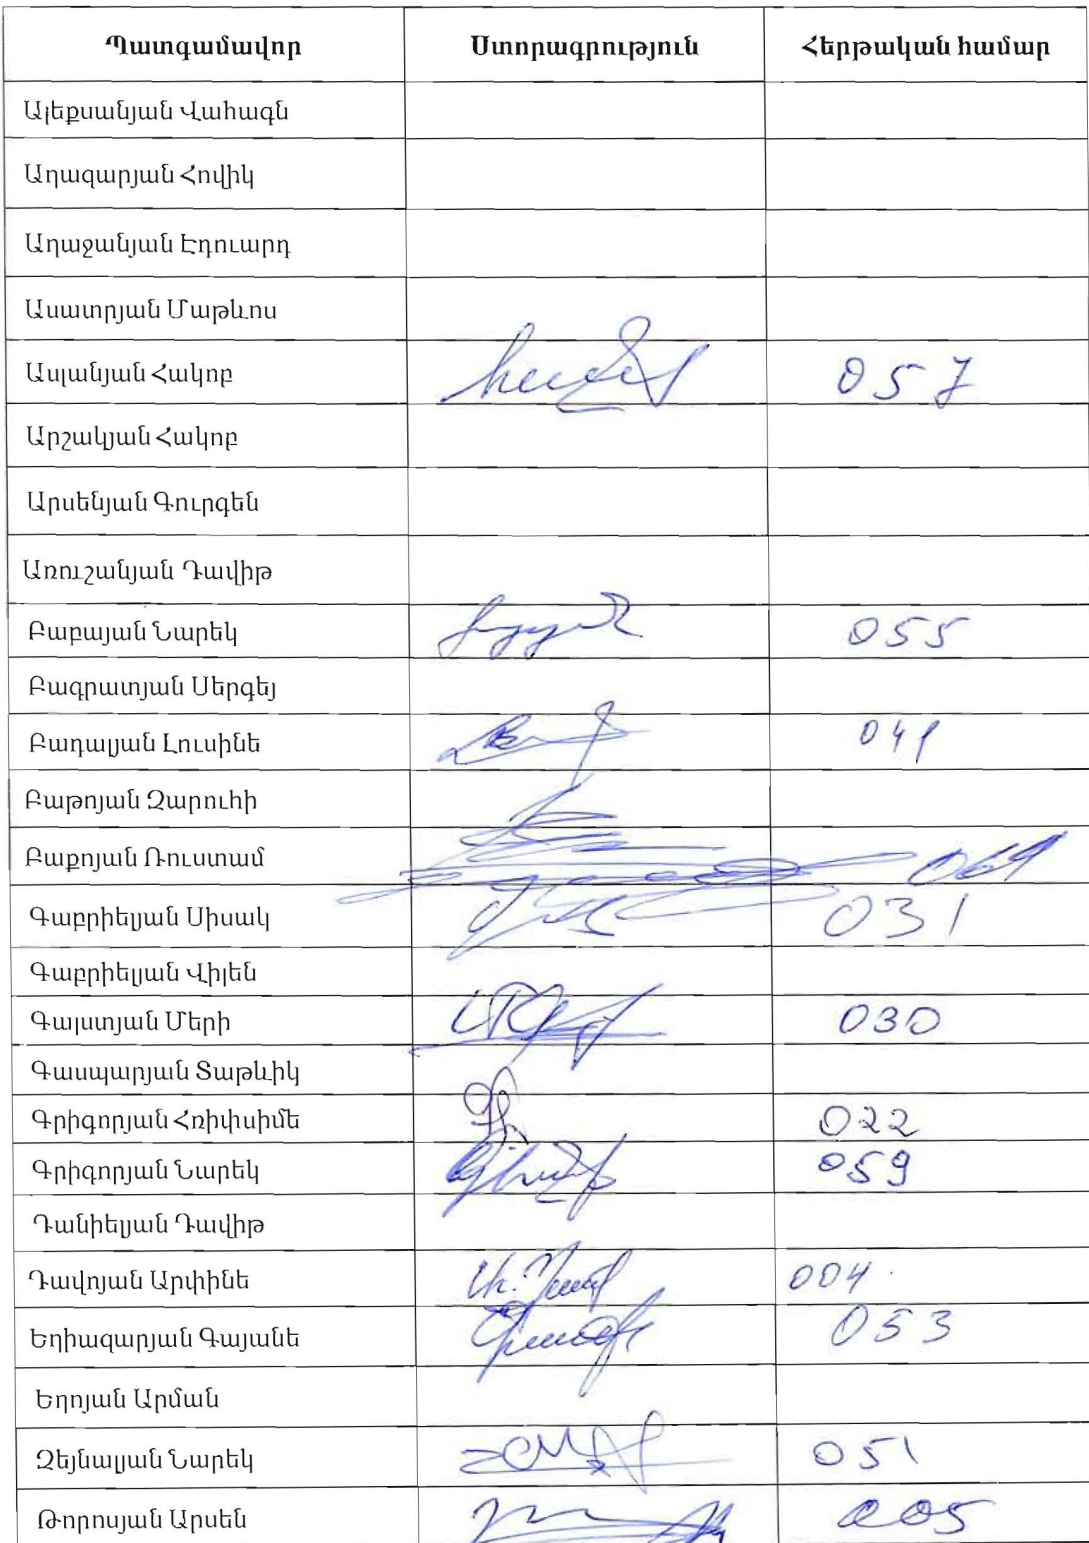 Պատգամավոր Ստորագրություն Հերթական համար
Ալեքսանյան Վահագն
Աղազարյան Հովիկ
Աղաջանյան Էդուարդ
Ասատրյան Մաթևոս
Ասլանյան Հակոբ 057
Արշակյան Հակոբ
Արսենյան Գուրգեն
Առուշանյան Դավիթ
Բաբայան Նարեկ 055
Բագրատյան Սերգեյ
Բադալյան Լուսինե 041
Բաթոյան Զարուհի
Բաքոյան Ռուստամ 069
Գաբրիելյան Սիսակ 031
Գաբրիելյան Վիլեն
Գալստյան Մերի 030
Գասպարյան Տաթևիկ
Գրիգորյան Հռիփսիմե 022
Գրիգորյան Նարեկ 059
Դանիելյան Դավիթ
Դավոյան Արփինե 004
Եղիազարյան Գայանե 053
Եղոյան Արման
Զեյնալյան Նարեկ 051
Թորոսյան Արսեն 005